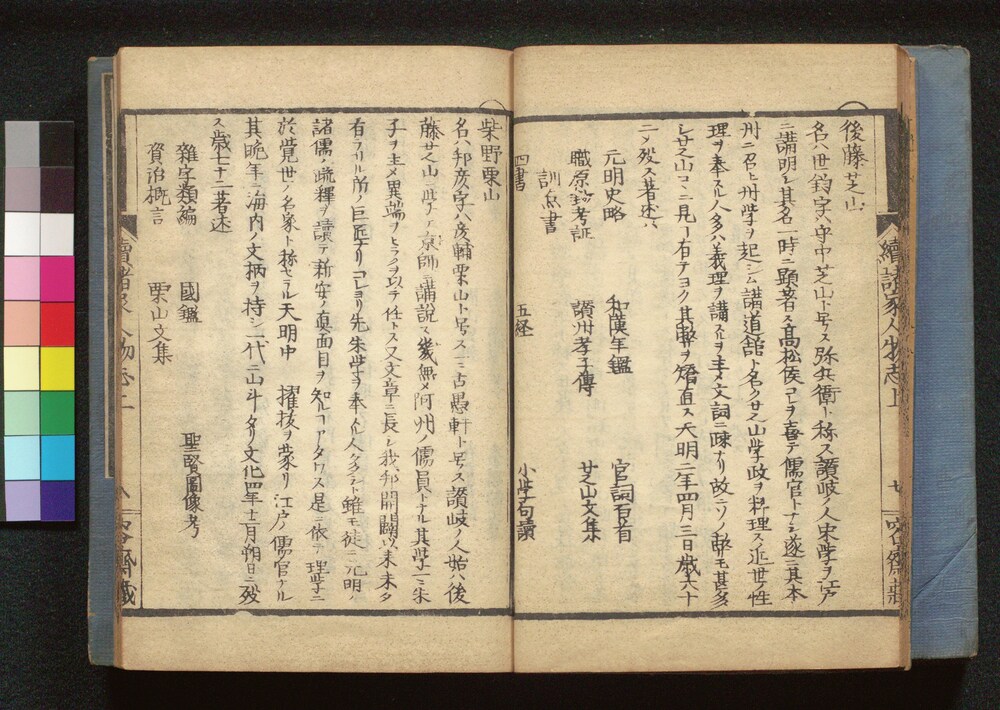 後藤芝山
名ハ世鈞字ハ守中芝山ト号ス弥兵衛ト称ス讃岐ノ人宋学ヲ江戸
ニ講明シ其名一時ニ顕著ス髙松侯コレヲ喜テ儒官トナシ遂ニ其本
州ニ召ヒ州学ヲ起シム講道舘ト名ク芝山学政ヲ料理ス近世ノ性
理ヲ奉スル人多ハ義理ヲ講スルヲ主ニ文詞ニ疎ナリ故ニソノ弊モ甚多
シ芝山コヽニ見ル有テヨク其弊ヲ矯直ス天明二年四月三日歳六十
二ノ歿ス著述ハ
元明史略 和漢年鑑 官詞百首
職原鈔考証 讃州孝子傳 芝山文集
訓点書
四書 五経 小学句讀
續諸家人物志上 七 咬齋藏
柴野栗山
名ハ邦彦字ハ彦輔栗山ト号ス一ニ古愚軒ト号ス讃岐ノ人始ハ後
藤芝山ニ学ヒ京師ニ講説ス幾無メ阿州ノ儒員トナル其学一ニ朱
子ヲ主メ異端ヲヒラクヲ以テ任トス又文章ニ長シ我邦開闢以来未タ
有ラサル所ノ巨匠ナリコレヨリ先朱学ヲ奉スル人多シト雖モ徒ニ元明ノ
諸儒ノ疏釋ヲ讀テ新安ノ真面目ヲ知ルコアタワス是ニ依テ理学ニ
於覚世ノ名家ト称セラル天明中 擢拔ヲ蒙リ江戸ノ儒官タル
其晩年ニ海内ノ文柄ヲ持シ一代ニ山斗タリ文化四年十二月朔日ニ歿
ス歳七十二著述
雜字類編 國鑑 聖賢圖像考
資治概言 栗山文集